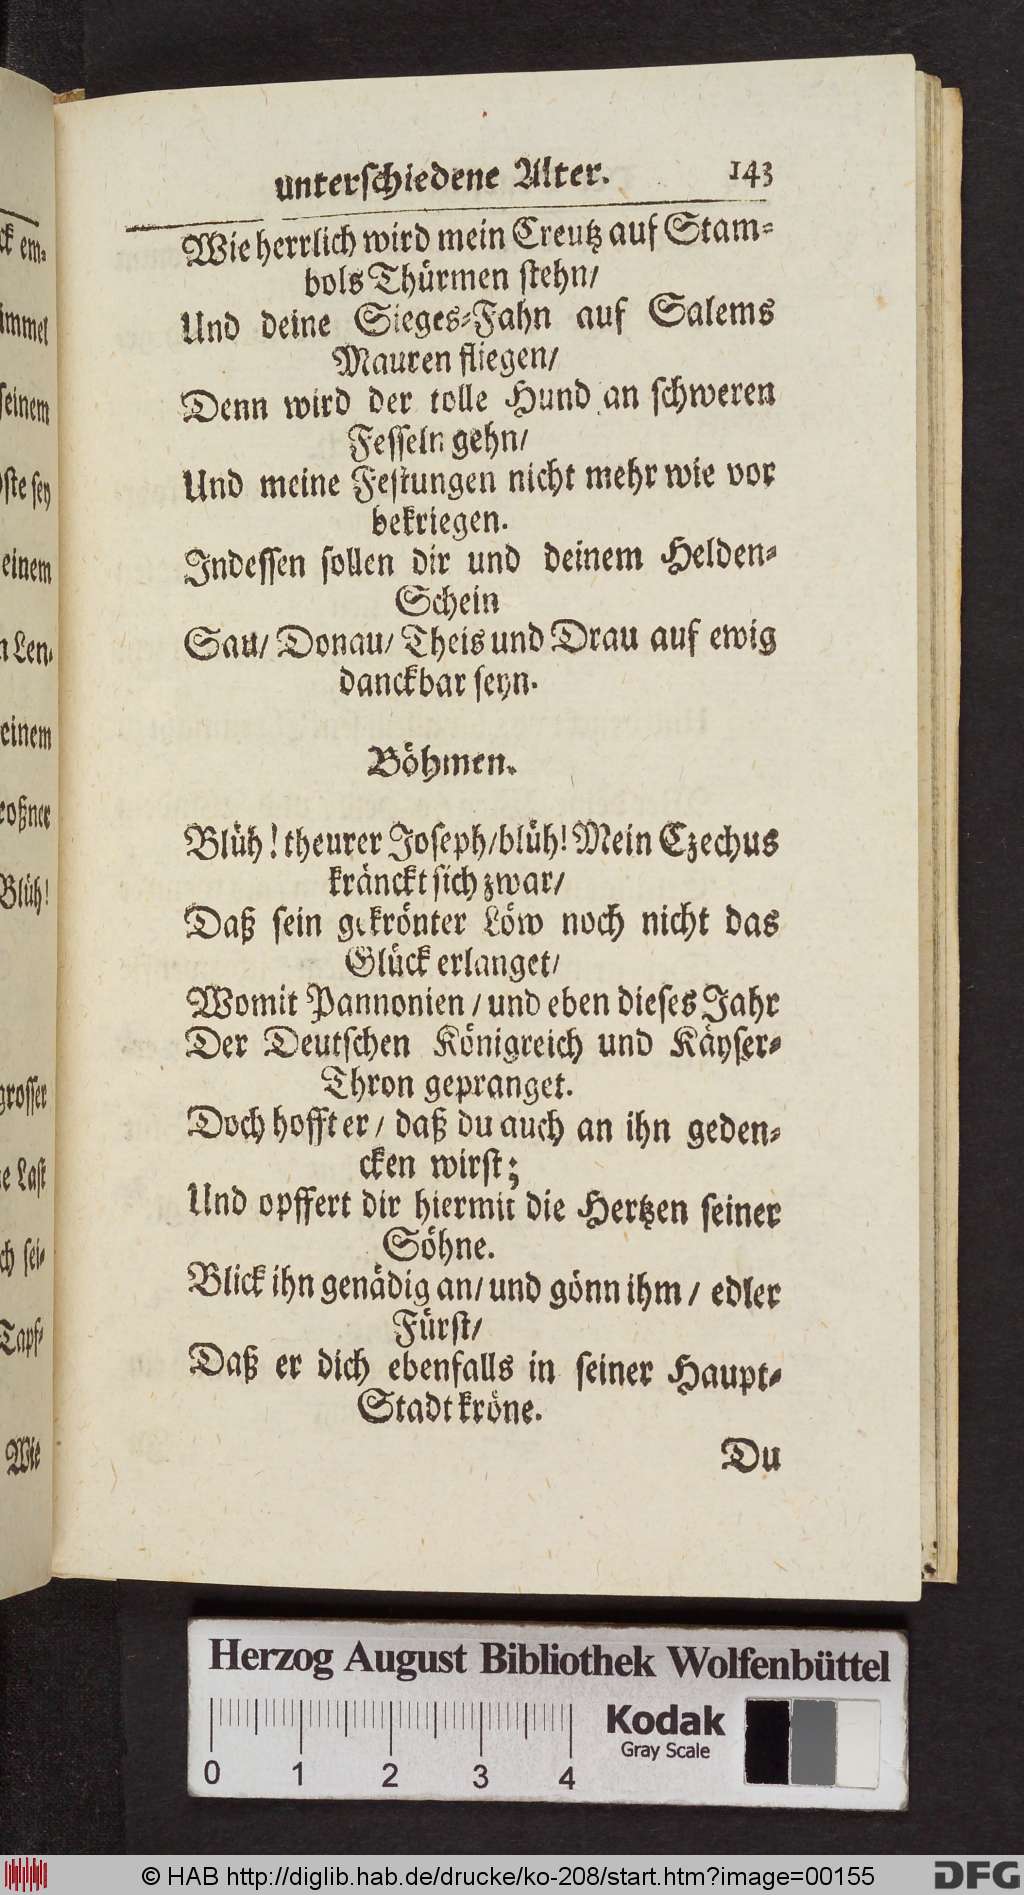 unterschiedene Alter. 143
Wie herrlich wird mein Creutz auf Stam-
bols Thürmen stehn/
Und deine Sieges-Fahn auf Salems
Mauren fliegen/
Denn wird der tolle Hund an schweren
Fesseln gehn/
Und meine Festungen nicht mehr wie vor
bekriegen.
Indessen sollen dir und deinem Helden-
Schein
Sau/ Donau/ Theis und Drau auf ewig
danckbar seyn.
Böhmen.
Blüh! theurer Joseph/ blüh! Mein Czechus
kränckt sich zwar/
Daß sein gekrönter Löw noch nicht das
Glück erlanget/
Womit Pannonien / und eben dieses Jahr
Der Deutschen Königreich und Käyser-
Thron gepranget.
Doch hofft er / daß du auch an ihn geden-
cken wirst;
Und opffert dir hiermit die Hertzen seiner
Söhne.
Blick ihn genädig an/ und gönn ihm / edler
Fürst/
Daß er dich ebenfalls in seiner Haupt-
Stadt kröne.
Du
ck em-
immel
seinem
ste sey
einem
n Len-
einem
roßner
Blüh!
grosser
e Last
ch sei-
Tapf-
Wie
Herzog August Bibliothek Wolfenbüttel
Kodak
Gray Scale
0 1 2 3 4
© HAB http://diglib.hab.de/drucke/ko-208/start.htm?image=00155
DFG